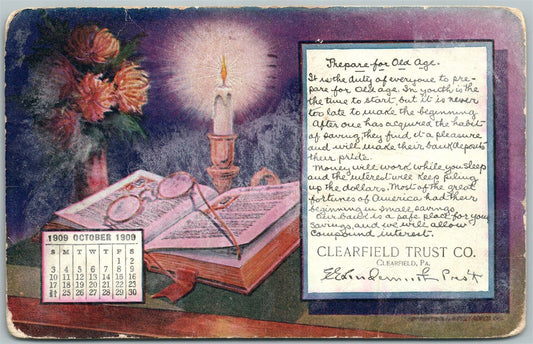 Prepare for Old Age.
It is the duty of everyone to pre-
pare for Old age. In youth is the
the time to start, but it is never
too late to make the beginning
After one has acquired the habit
of saving, they find it a pleasure
and will make their bank deposits
their pride.
Money will work while you sleep
and the interest will keep piling
up the dollars. Most of the great
fortunes of America had their
beginning in small savings
Our bank is a safe place for your
savings, and we will allow
compound interest.
CLEARFIELD TRUST CO.
CLEARFIELD, PA.
Prest
1909 OCTOBER 1909
S M T W T F S
1 2
3 4 5 6 7 8 9
10 11 12 13 14 15 16
17 18 19 20 21 22 23
24/31 25 26 27 28 29 30